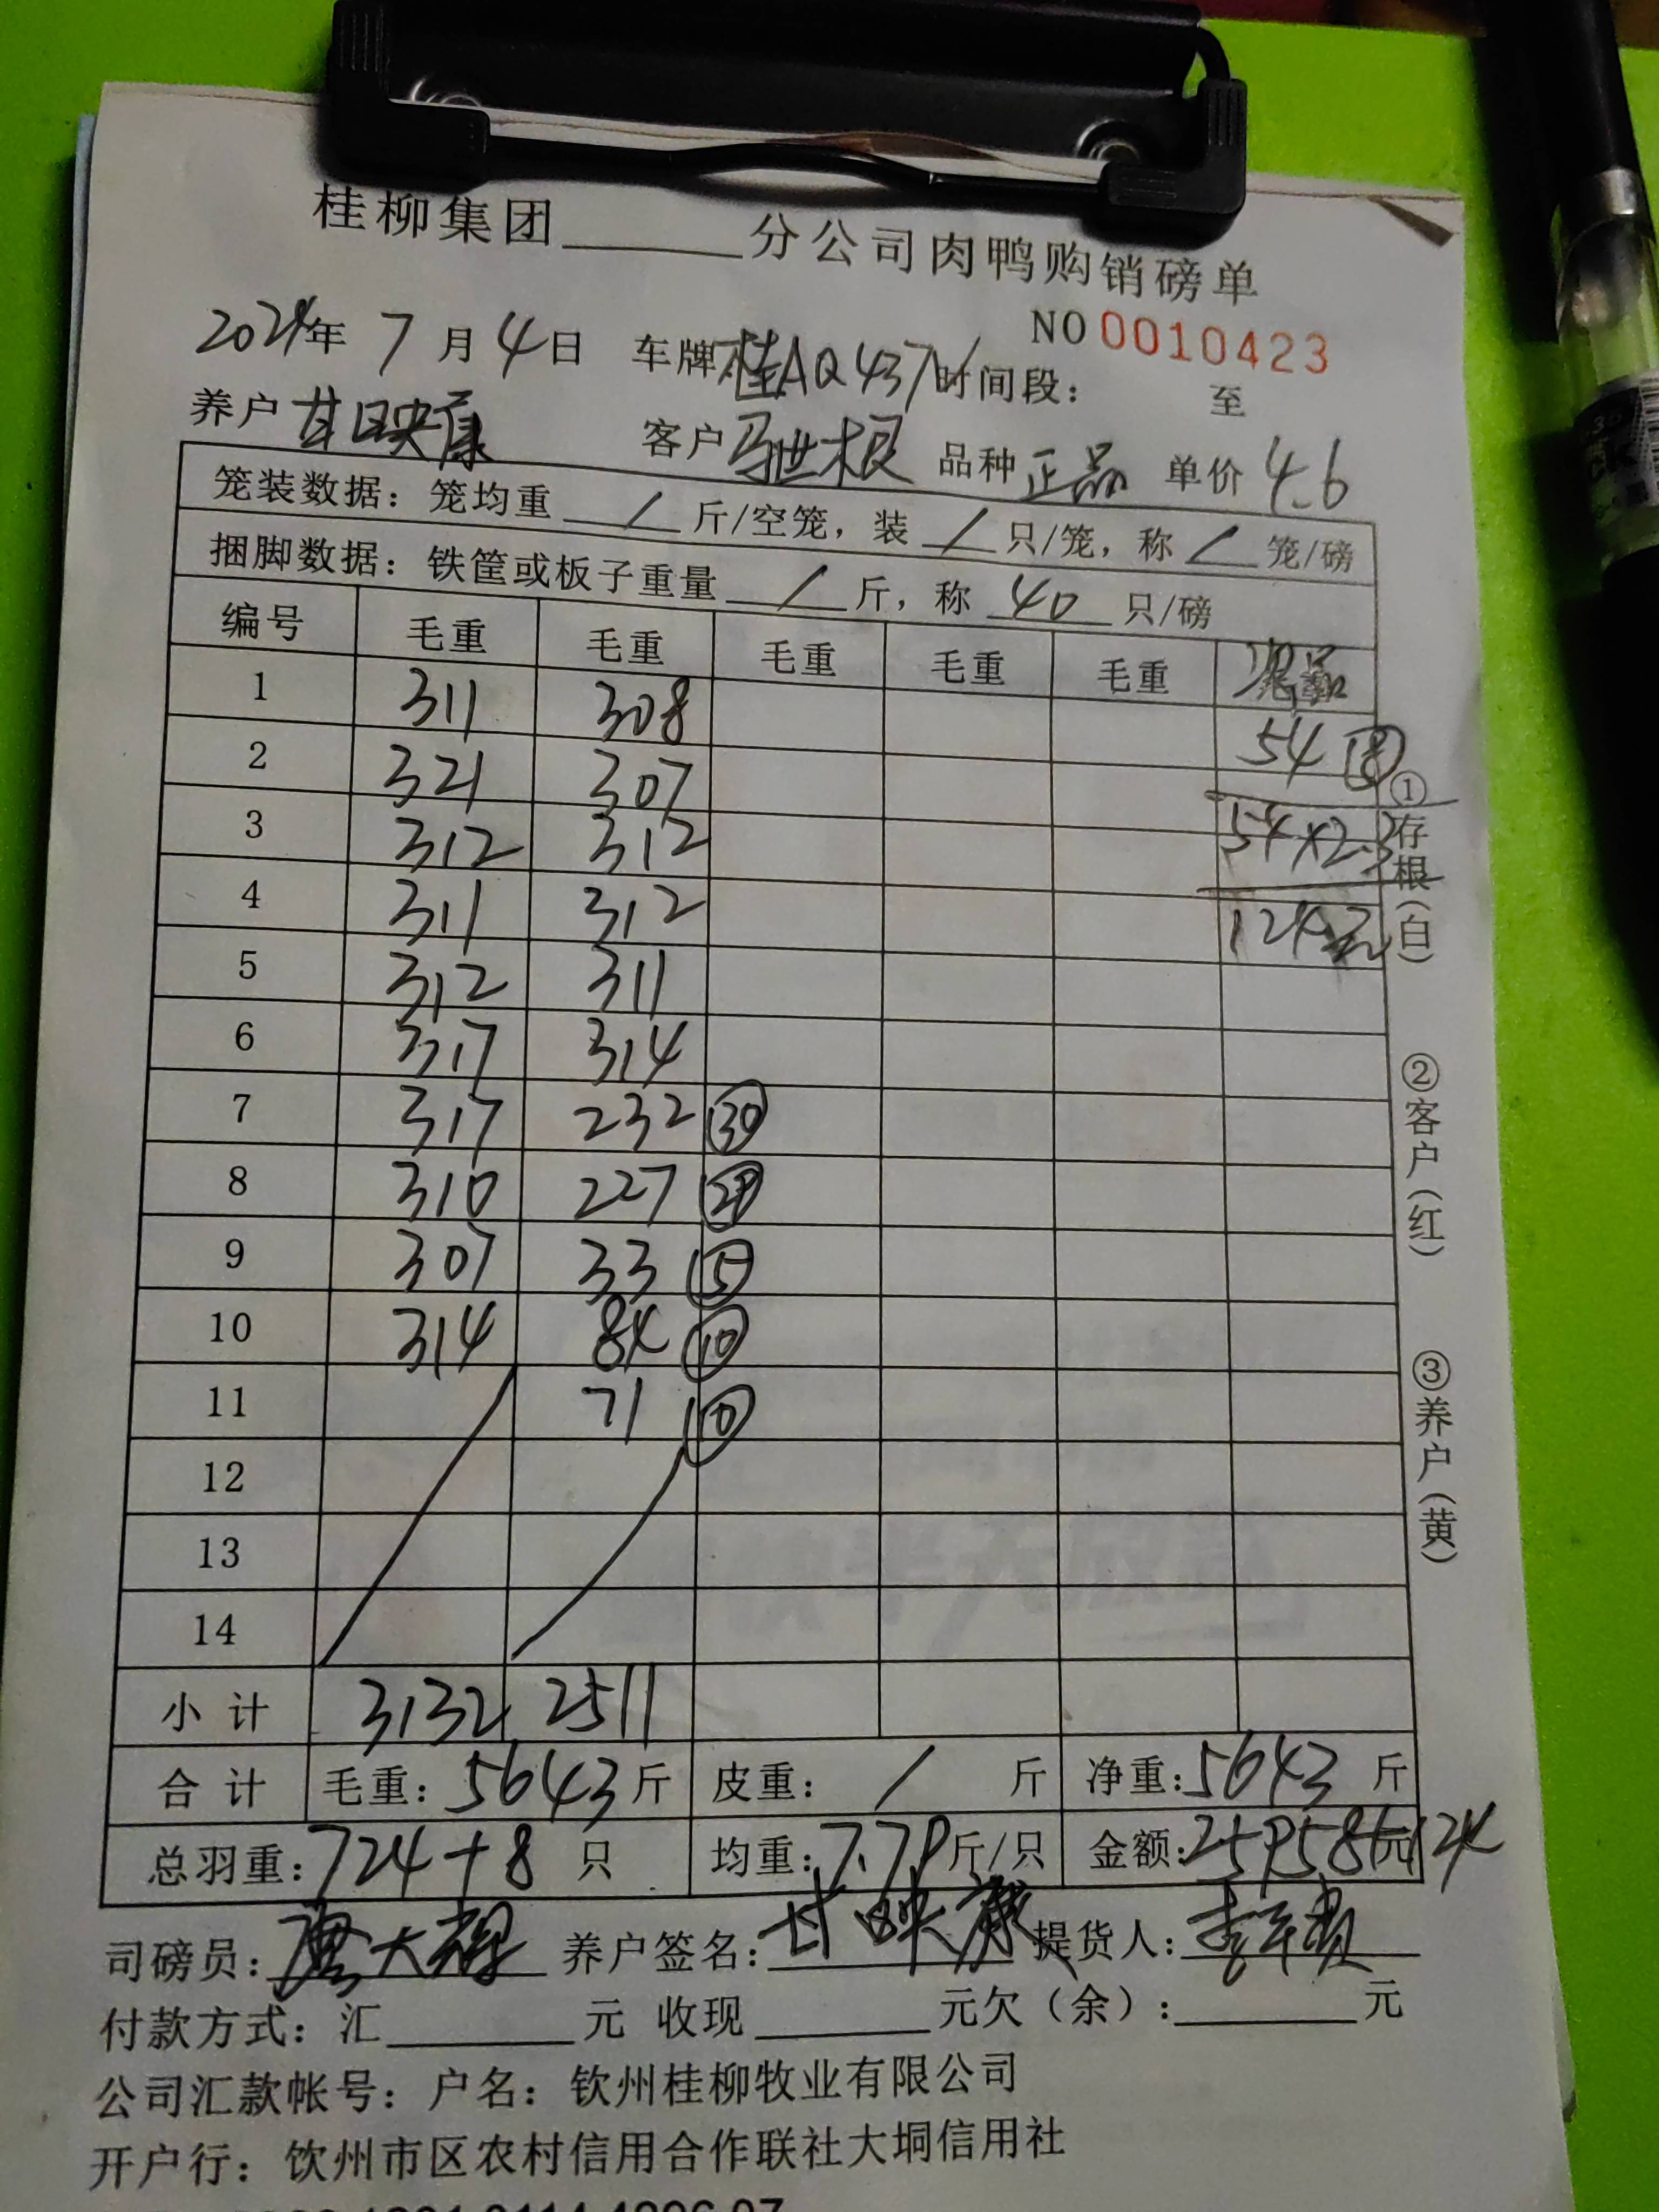 桂柳集团______分公司肉鸭购销磅单
NO 0010423
2024年 7月4日 车牌 桂AQ437 时间段： 至
养户 甘映康 客户 品种 正品 单价 4.6
笼装数据：笼均重 / 斤/空笼，装 / 只/笼，称 / 笼/磅
捆脚数据：铁筐或板子重量 / 斤，称 40 只/磅
编号 毛重 毛重 毛重 毛重 毛重
1 311 308
2 321 307 54 ⑧
3 312 312 54×2.3
4 311 312 124元
5 312 311
6 317 314
7 317 232 ㉚
8 310 227 ㉙
9 307 33 ⑤
10 314 84 ⑩
11 71 ⑩
12
13
14
小计 3132 2511
合计 毛重：5643斤 皮重： / 斤 净重：5643 斤
总羽重：724+8 只 均重：7.79斤/只 金额：25958元 124
司磅员： 养户签名：甘映康 提货人：
付款方式：汇______元 收现______元欠（余）：______元
公司汇款帐号：户名：钦州桂柳牧业有限公司
开户行：钦州市区农村信用合作联社大垌信用社
①存根（白）
②客户（红）
③养户（黄）